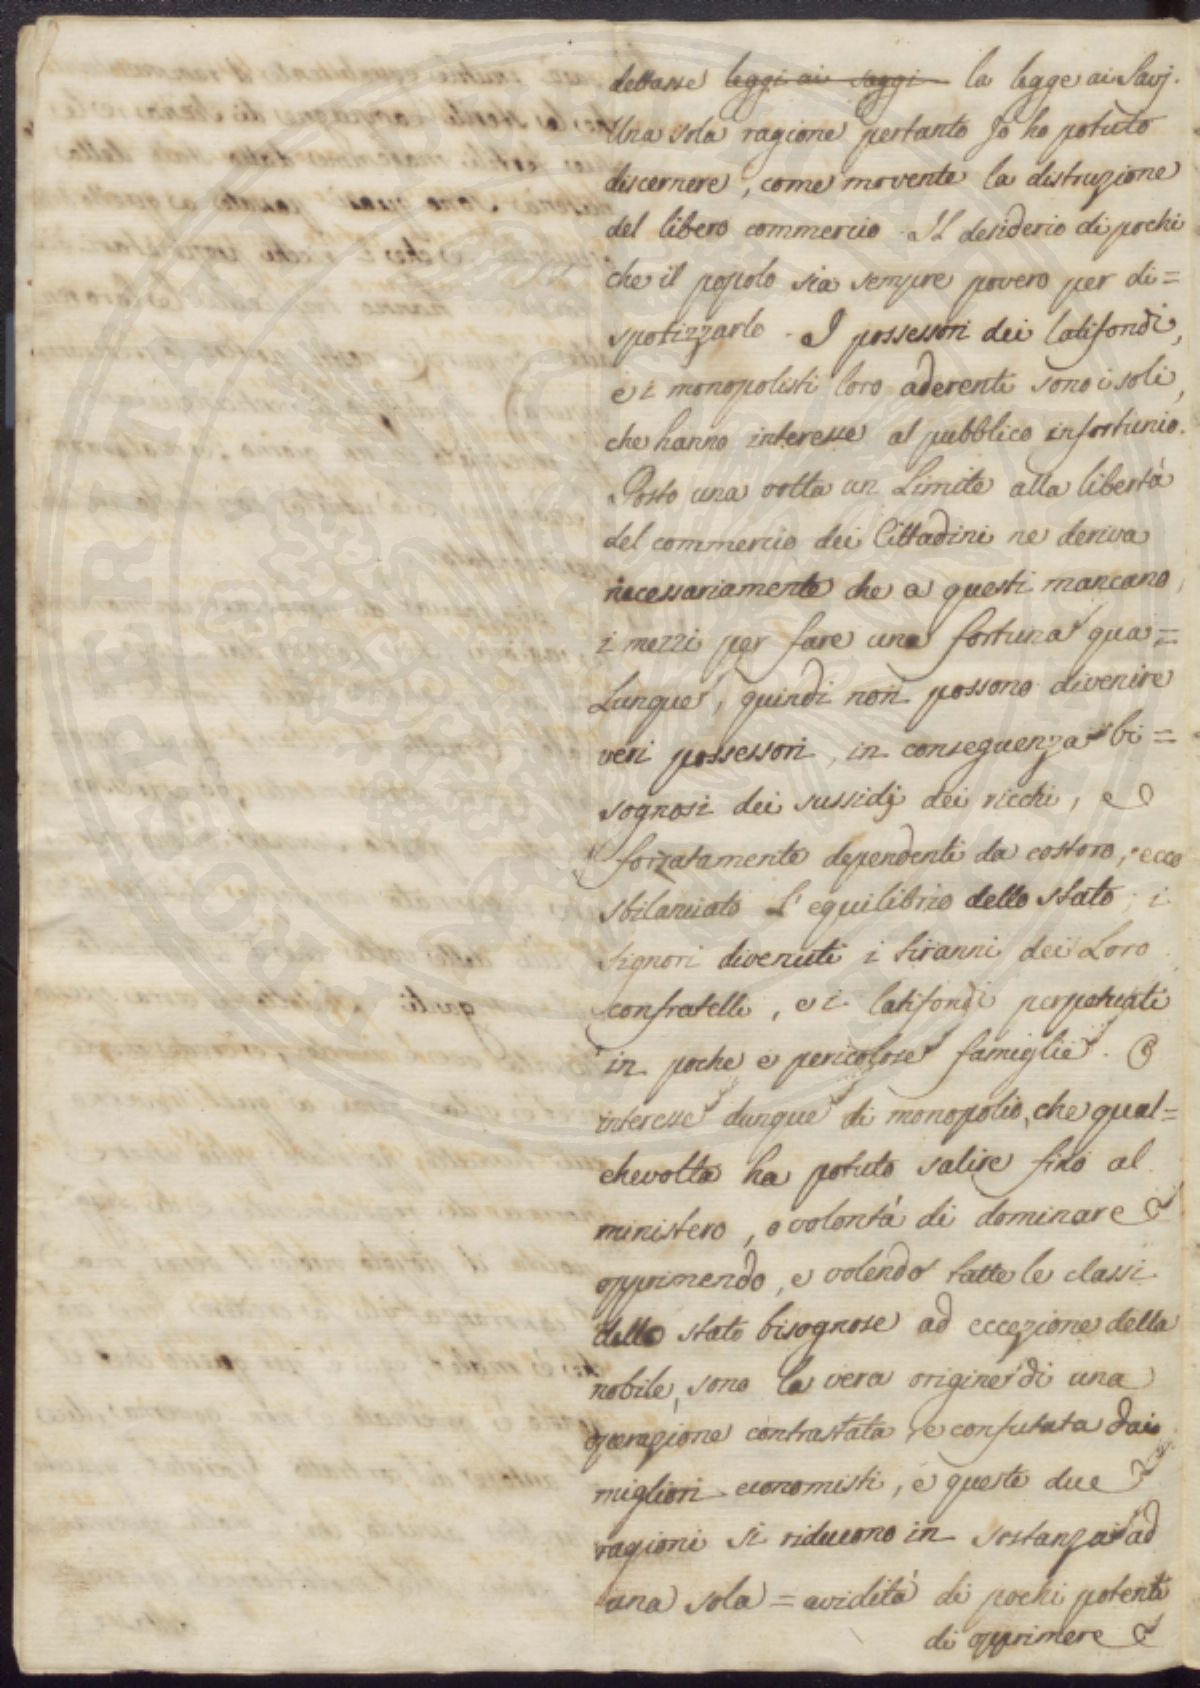 dettasse leggi ai saggi la legge ai Savj.
Una sola ragione pertanto Jo ho potuto
discernere, come movente la distruzione
del libero commercio. Il desiderio di pochi
che il popolo sia sempre povero per di=
spotizzarlo. I possessori dei latifondi,
e i monopolisti loro aderenti sono i soli,
che hanno interesse al pubblico infortunio.
Posto una volta un Limite alla libertà
del commercio dei Cittadini ne deriva
necessariamente che a questi mancano
i mezzi per fare una fortuna qua=
Lunque, quindi non possono divenire
veri possessori, in conseguenza bi=
sognosi dei sussidj dei ricchi, e
forzatamente dependenti da costoro, ecco
sbilanciato L'equilibrio dello stato, i
signori divenuti i tiranni dei Loro
confratelli, e i latifondi perpetuati
in poche e pericolose famiglie. O
interesse dunque di monopolio, che qual=
chevolta ha potuto salire fino al
ministero, o volontà di dominare
opprimendo, e volendo tutte le classi
dello stato bisognose ad eccezione della
nobile, sono la vera origine di una
operazione contrastata, e confutata dai
migliori economisti, e queste due
ragioni si riducono in sostanza ad
una sola = avidità di pochi potenti
di opprimere